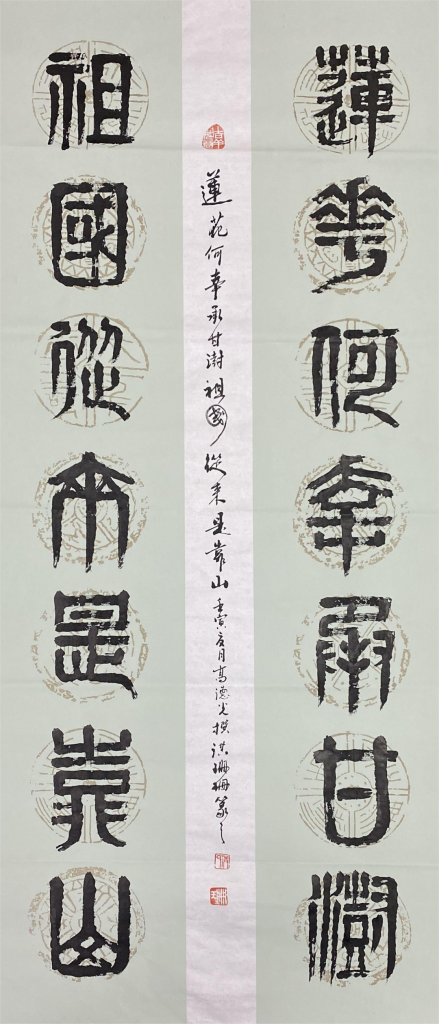 蓮華何幸承甘澍
蓮花何幸承甘澍祖國從來是靠山壬寅夏月高德光撰洪珊珊篆之
祖國從來是靠山